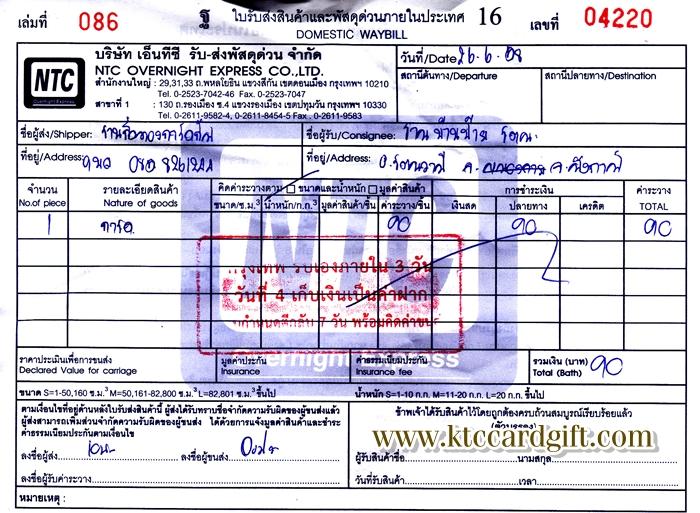 เล่มที่ 086 ใบรับส่งสินค้าและพัสดุด่วนภายในประเทศ 16 เลขที่ 04220
DOMESTIC WAYBILL
NTC
Overnight Express
บริษัท เอ็นทีซี รับ-ส่งพัสดุด่วน จำกัด
NTC OVERNIGHT EXPRESS CO.,LTD.
สำนักงานใหญ่ : 29,31,33 ถ.พหลโยธิน แขวงสีกัน เขตดอนเมือง กรุงเทพฯ 10210
Tel. 0-2523-7042-46 Fax. 0-2523-7047
สาขาที่ 1 : 130 ถ.รองเมือง ซ.4 แขวงรองเมือง เขตปทุมวัน กรุงเทพฯ 10330
Tel. 0-2611-9582-4, 0-2611-8454-5 Fax. 0-2611-8387
วันที่/Date 26-6-08
สถานีต้นทาง/Departure สถานีปลายทาง/Destination
ชื่อผู้ส่ง/Shipper: ชื่อผู้รับ/Consignee:
ที่อยู่/Address: ที่อยู่/Address:
จำนวน รายละเอียดสินค้า คิดค่าระวางตาม ขนาดและน้ำหนัก มูลค่าสินค้า การชำระเงิน ค่าระวาง
No.of piece Nature of goods ขนาด/ซ.ม.³ น้ำหนัก/ก.ก. มูลค่าสินค้า/ชิ้น ค่าระวาง/ชิ้น เงินสด ปลายทาง เครดิต TOTAL
1 การ์ด 90 90 90
NTC
Overnight Express
กรุงเทพ รับเองภายใน 3 วัน
วันที่ 4 เก็บเงินเป็นค่าฝาก
7 วัน พร้อมคิดค่า
ราคาประเมินเพื่อการขนส่ง มูลค่าประกัน ค่าธรรมเนียมประกัน รวมเงิน (บาท) 90
Declared Value for carriage Insurance Insurance fee Total (Bath)
ขนาด S=1-50,160 ซ.ม.³ M=50,161-82,800 ซ.ม.³ L=82,801 ซ.ม.³ขึ้นไป น้ำหนัก S=1-10 ก.ก. M=11-20 ก.ก. L=20 ก.ก. ขึ้นไป
ตามเงื่อนไขที่อยู่ด้านหลังใบรับส่งสินค้านี้ ผู้ส่งได้รับทราบข้อจำกัดความรับผิดของผู้ขนส่งแล้ว
ผู้ส่งสามารถเพิ่มส่วนจำกัดความรับผิดของผู้ขนส่ง ได้ด้วยการแจ้งมูลค่าสินค้าและชำระ
ค่าธรรมเนียมประกันตามเงื่อนไข
ลงชื่อผู้ส่ง ลงชื่อผู้ขนส่ง
ลงชื่อผู้รับค่าระวาง
ข้าพเจ้าได้รับสินค้าไว้โดยถูกต้องครบถ้วนสมบูรณ์เรียบร้อยแล้ว
www.ktccardgift.com
ผู้รับสินค้าชื่อ นามสกุล
วันที่รับสินค้า เวลา
หมายเหตุ :